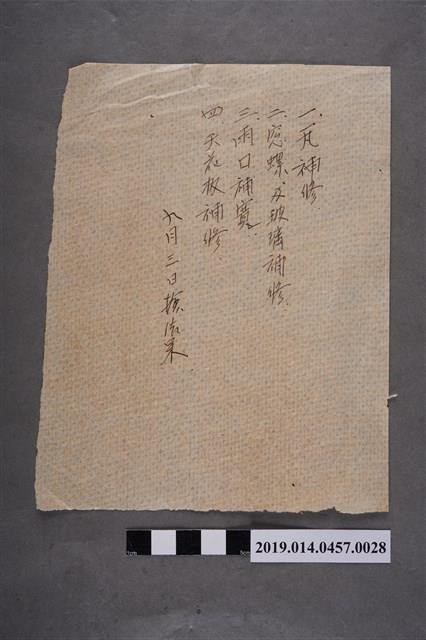 一、瓦補修
二、窓螺及玻璃補修
三、雨口補寬
四、天花板補修
九月三日
2019.014.0457.0028